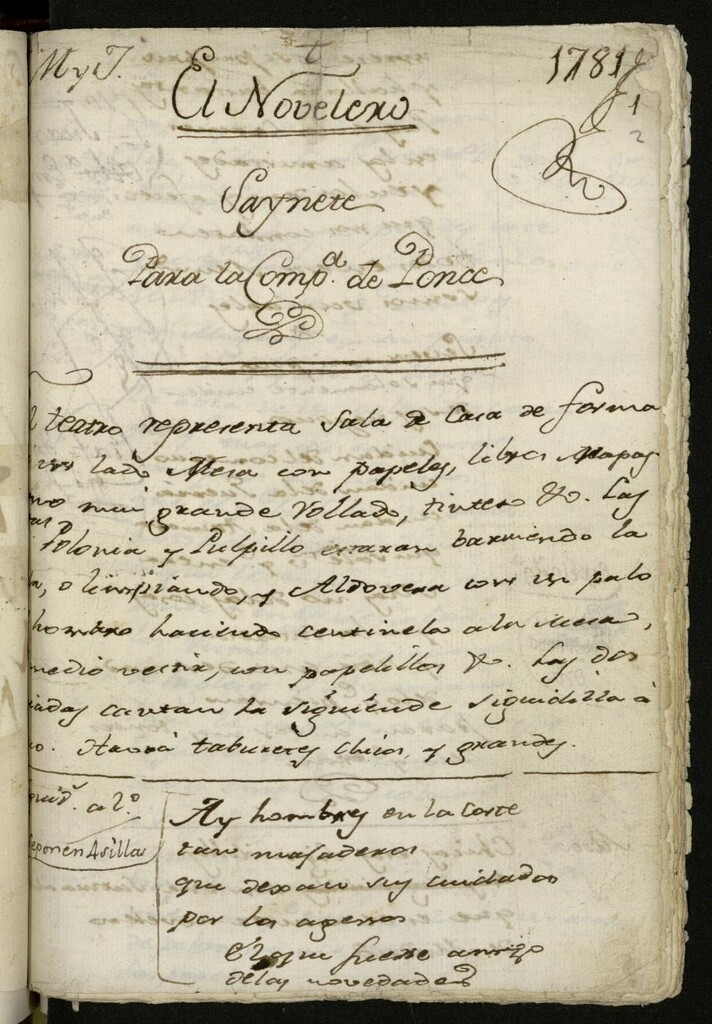 M y J.
1781
1
2
El Novelero
Saynete
Para la Comp.a de Ponce
teatro representa Sala de Casa de forma
un lado Mesa con papeles, libros Mapas
mui grande rollado, tintero &c. Las
Polonia y Pulpillo estaran barriendo la
o limpiando, y Aldovera con un palo
hombro haciendo centinela a la Mesa,
medio vestir, con papelillos &c. Las dos
criadas cantan la siguiende siguidilla à
Havrà taburetes chicos, y grandes.
a 2.o
se ponen 4 sillas
Ay hombres en la Corte
tan majaderos
que dexan sus cuidados
por los agenos
él que fuese amigo
de las novedades